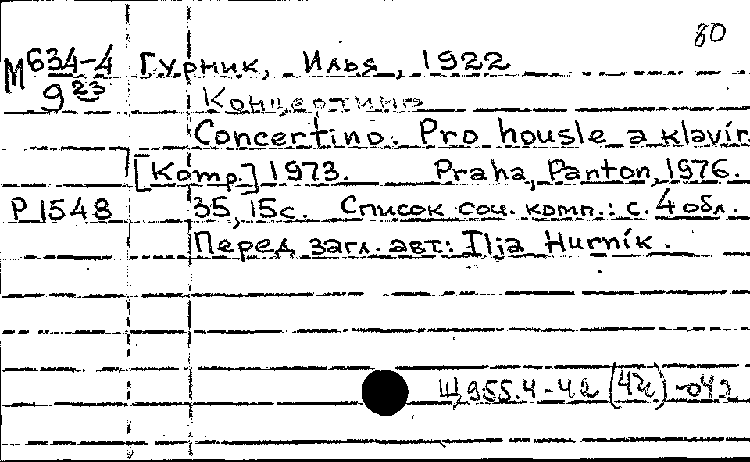 80
М634-4 Гурник, Илья, 1922
9 23 Концертино
Concertino. Pro housle a klavír
[Komp.] 1973. Praha, Panton, 1976.
Р1548 35, 15с. Список соч. комп.: с. 4 обл.
Перед загл. авт: Ilja Hurník.
Щ955.4-42 (4Че) -042